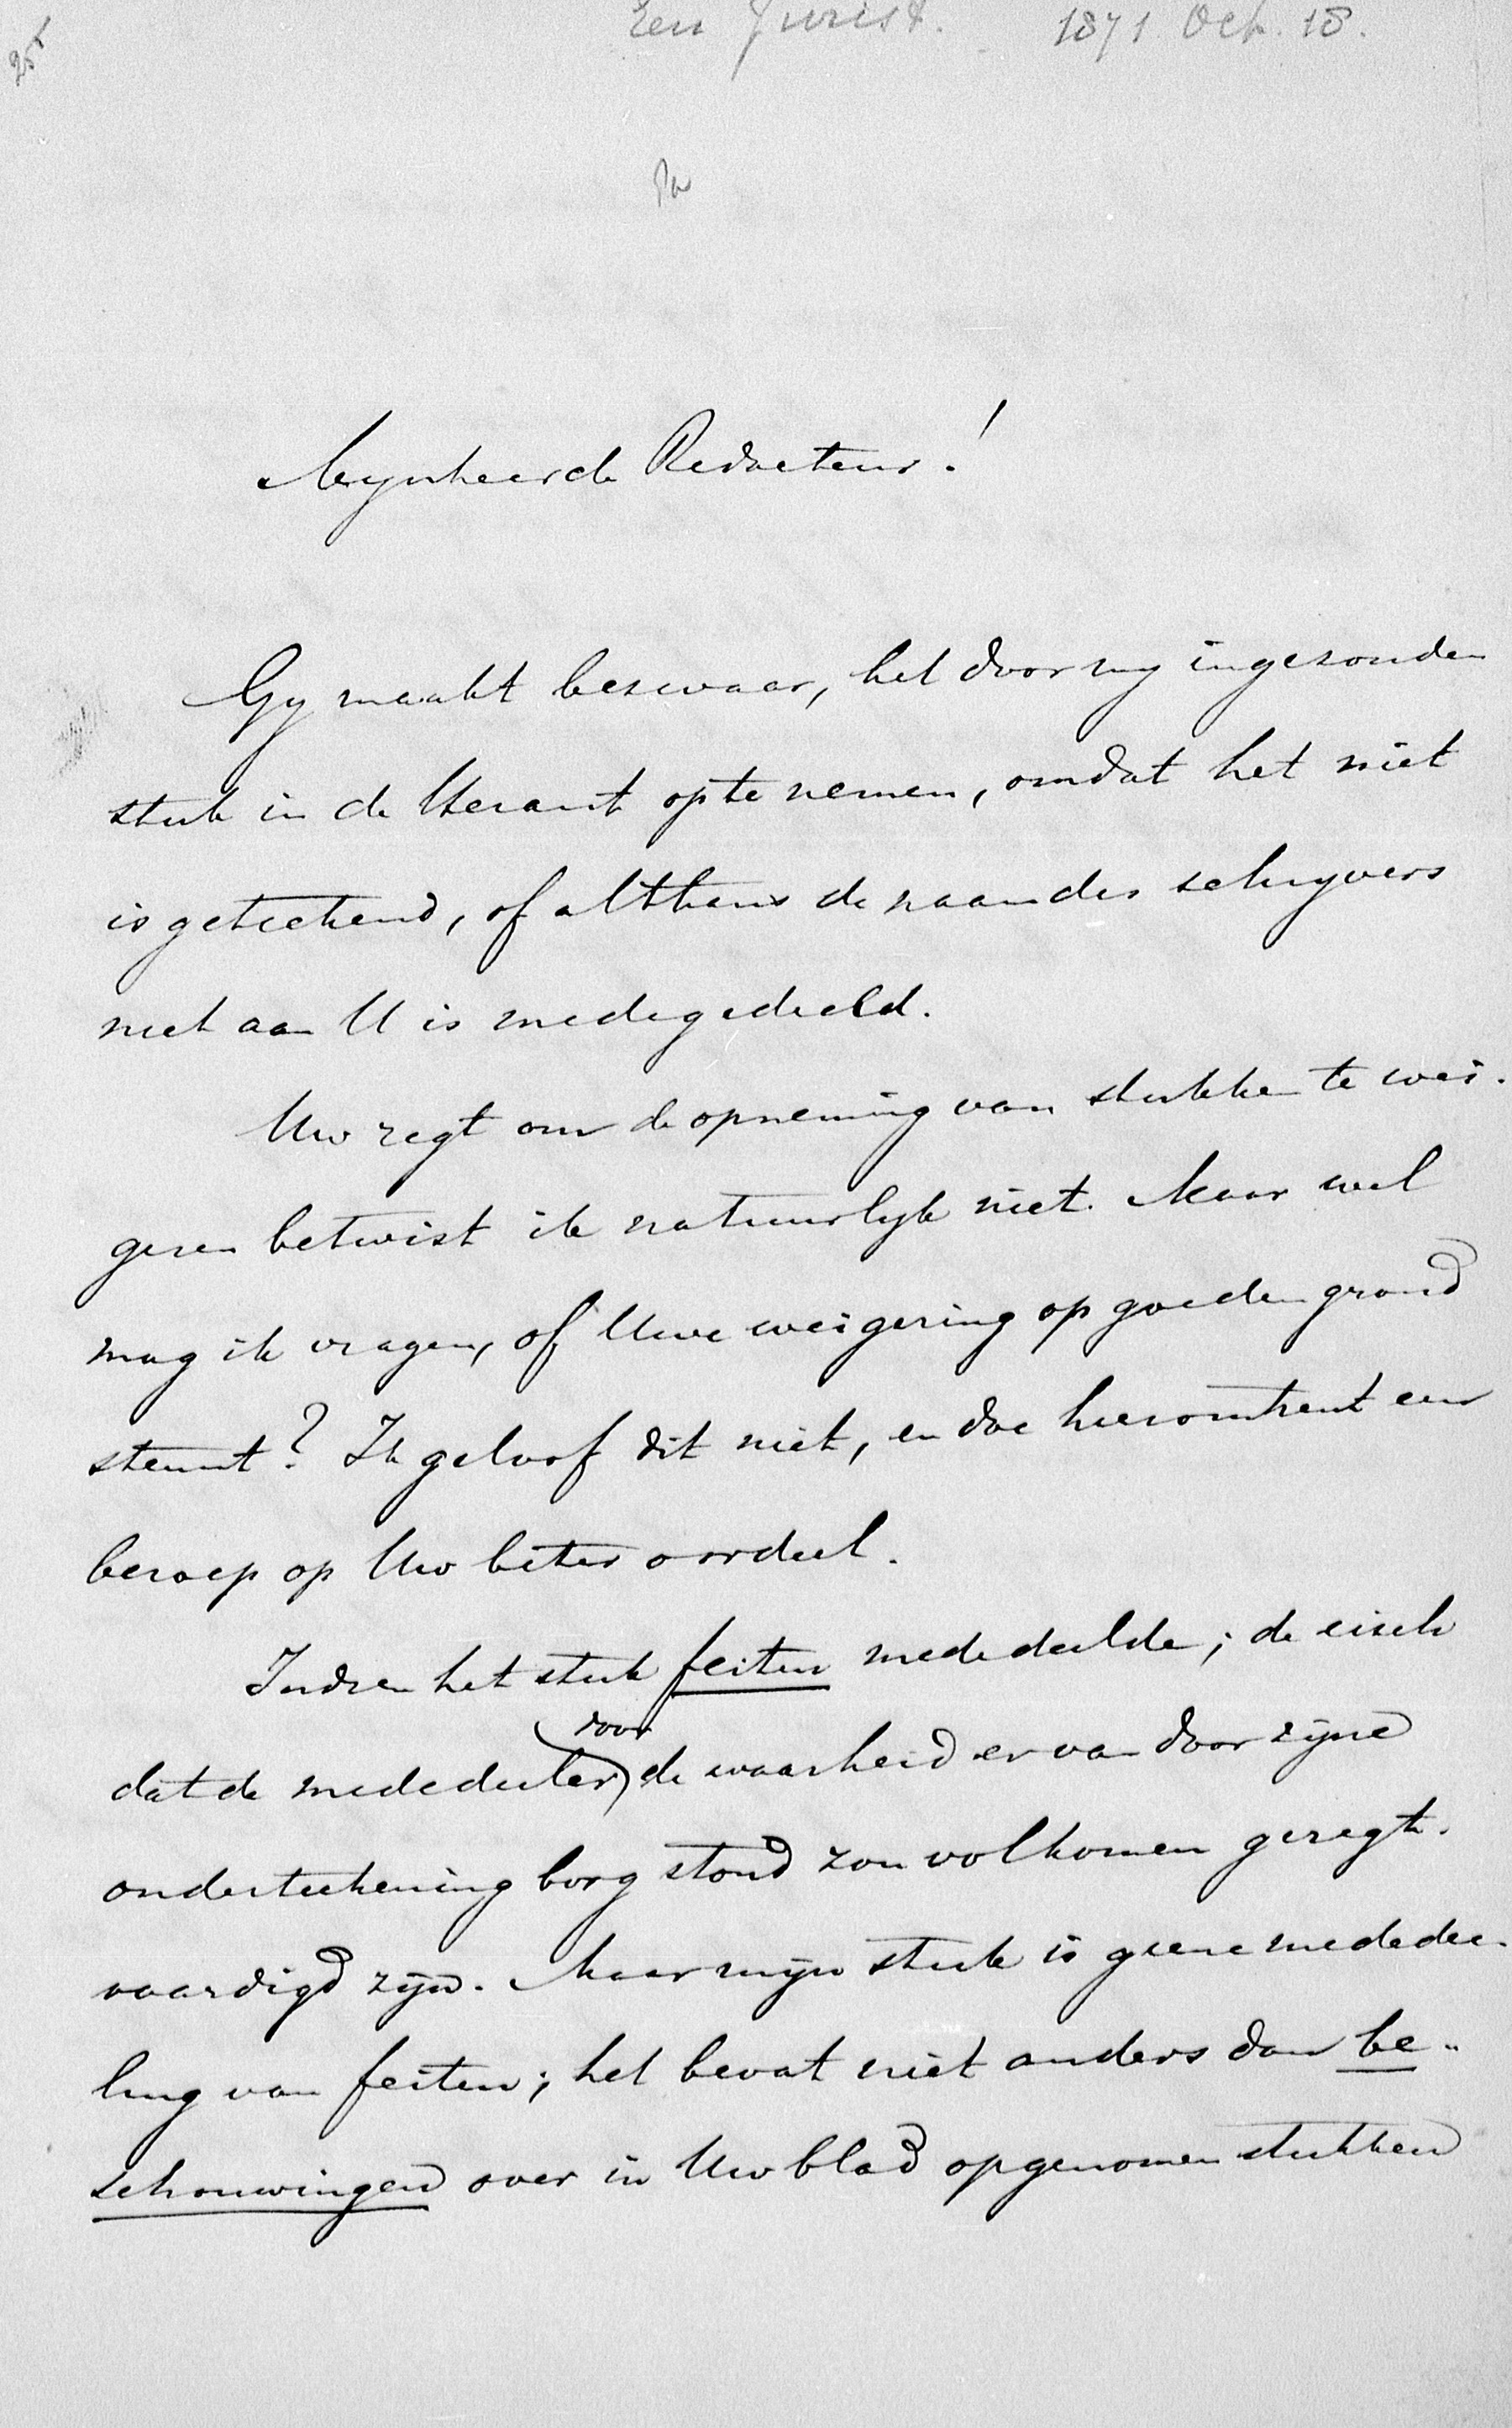 Een Jurist. 1871 Oct. 18.
Mynheer de Redacteur!
Gy maakt bezwaar, het door my ingezonden
stuk in de Heraut op te nemen, omdat het niet
is geteekend, of althans de naam des schryvers
niet aan U is medegedeeld.
Uw regt om de opneming van stukken te wei-
geren betwist ik natuurlyk niet. Maar wel
mag ik vragen, of Uwe weigering op goeden grond
steunt? Ik geloof dit niet, en doe hieromtrent een
beroep op Uw beter oordeel.
Indien het stuk feiten mededeelde; de eisch
door
dat de mededeeler de waarheid er van door zijne
onderteekening borg stond zou volkomen geregt-
vaardigd zijn. Maar mijn stuk is geene mededee-
ling van feiten; het bevat niet anders dan be-
schouwingen over in Uw blad opgenomen stukken